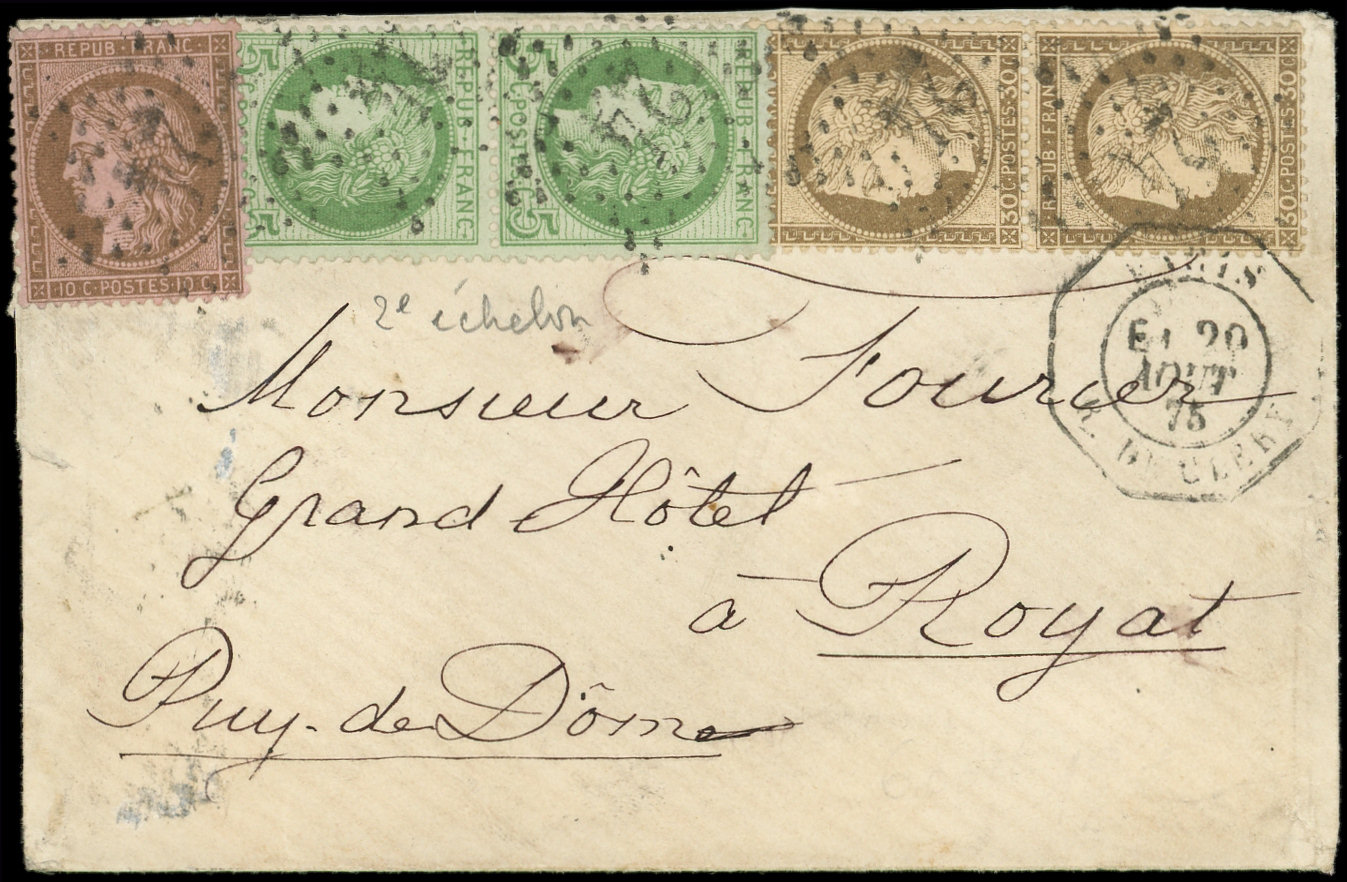 REPUB·FRANC
10 C·POSTES·10 C
5 REPUB·FRANC 5
5 C·POSTES·C 5 REPUB·FRANC
30 C·POSTES·30 C
REPUB·FRANC 30 C·POSTES·30 C
2e échelon
PARIS
E1 20
AOUT
75
R. DE CLERY
Monsieur Fourier
Grand Hôtel
à Royat
Puy-de Dôme